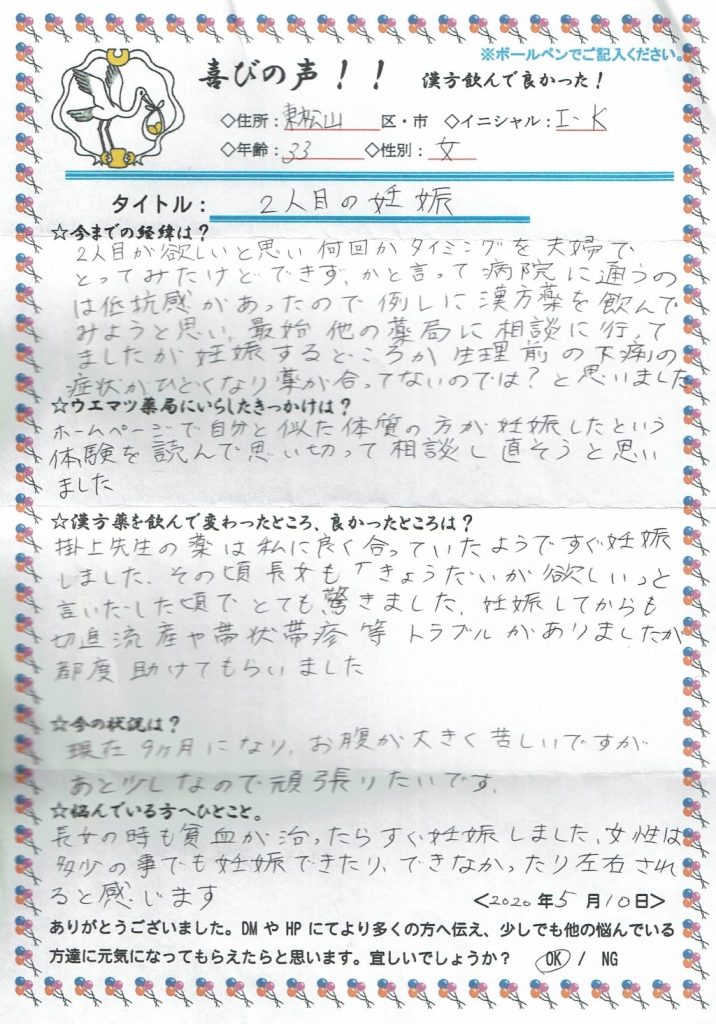 ※ボールペンでご記入ください。
喜びの声！！ 漢方飲んで良かった！
◇住所：東松山 区・市 ◇イニシャル：I・K
◇年齢：33 ◇性別：女
タイトル： 2人目の妊娠
☆今までの経緯は？
2人目が欲しいと思い何回かタイミングを夫婦で
とってみたけどできず、かと言って病院に通うの
は低抗感があったので例しに漢方薬を飲んで
みようと思い、最始他の薬局に相談に行って
ましたが妊娠するどころか生理前の下痢の
症状がひどくなり薬が合ってないのでは？と思いました
☆ウエマツ薬局にいらしたきっかけは？
ホームページで自分と似た体質の方が妊娠したという
体験を読んで思い切って相談し直そうと思い
ました
☆漢方薬を飲んで変わったところ、良かったところは？
掛上先生の薬は私に良く合っていたようですぐ妊娠
しました。その頃長女も「きょうだいが欲しい」と
言いだした頃でとても驚きました。妊娠してからも
切迫流産や帯状帯疹等トラブルがありましたが
都度助けてもらいました
☆今の状況は？
現在9ヶ月になり、お腹が大きく苦しいですが
あと少しなので頑張りたいです。
☆悩んでいる方へひとこと。
長女の時も貧血が治ったらすぐ妊娠しました、女性は
多少の事でも妊娠できたり、できなかったり左右され
ると感じます
＜2020年5月10日＞
ありがとうございました。DMやHPにてより多くの方へ伝え、少しでも他の悩んでいる
方達に元気になってもらえたらと思います。宜しいでしょうか？ OK / NG